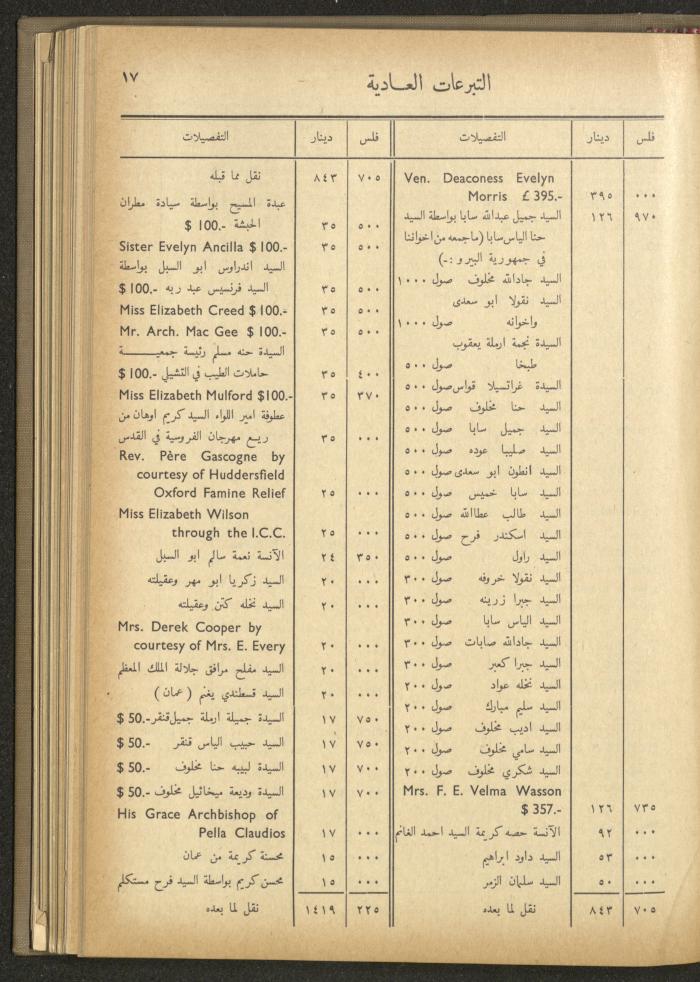 ١٧
التبرعات العـادية
فلس دينار التفصيلات
Ven. Deaconess Evelyn
Morris £ 395.- ٣٩٥ ٠٠٠
السيد جميل عبدالله سابا بواسطة السيد ١٢٦ ٩٧٠
حنا الياس سابا (ماجمعه من اخواننا
في جمهورية البيرو :-)
السيد جادالله مخلوف صول ١٠٠٠
السيد نقولا ابو سعدى
واخوانه صول ١٠٠٠
السيدة نجمة ارملة يعقوب
طبخا صول ٥٠٠
السيدة غراتسيلا قواس صول ٥٠٠
السيد حنا مخلوف صول ٥٠٠
السيد جميل سابا صول ٥٠٠
السيد صليبا عوده صول ٥٠٠
السيد انطون ابو سعدى صول ٥٠٠
السيد سابا خميس صول ٥٠٠
السيد طالب عطاالله صول ٥٠٠
السيد اسكندر فرح صول ٥٠٠
السيد راول صول ٥٠٠
السيد نقولا خروفه صول ٣٠٠
السيد جبرا زرينه صول ٣٠٠
السيد الياس سابا صول ٣٠٠
السيد جادالله صابات صول ٣٠٠
السيد جبرا كعبر صول ٣٠٠
السيد نخله عواد صول ٢٠٠
السيد سليم مبارك صول ٢٠٠
السيد اديب مخلوف صول ٢٠٠
السيد سامي مخلوف صول ٢٠٠
السيد شكري مخلوف صول ٢٠٠
Mrs. F. E. Velma Wasson
$ 357.- ١٢٦ ٧٣٥
الآنسة حصه كريمة السيد احمد الغانم ٩٢ ٠٠٠
السيد داود ابراهيم ٥٣ ٠٠٠
السيد سلمان الزمر ٥٠ ٠٠٠
نقل لما بعده ٨٤٣ ٧٠٥
فلس دينار التفصيلات
نقل مما قبله ٨٤٣ ٧٠٥
عبدة المسيح بواسطة سيادة مطران
الحبشة $ 100.- ٣٥ ٥٠٠
Sister Evelyn Ancilla $ 100.- ٣٥ ٥٠٠
السيد اندراوس ابو السبل بواسطة
السيد فرنسيس عبد ربه $ 100.- ٣٥ ٥٠٠
Miss Elizabeth Creed $ 100.- ٣٥ ٥٠٠
Mr. Arch. Mac Gee $ 100.- ٣٥ ٥٠٠
السيدة حنه مسلم رئيسة جمعيـــة
حاملات الطيب في التشيلي $ 100.- ٣٥ ٤٠٠
Miss Elizabeth Mulford $100.- ٣٥ ٣٧٠
عطوفة امير اللواء السيد كريم اوهان من
ريع مهرجان الفروسية في القدس ٣٥ ٠٠٠
Rev. Père Gascogne by
courtesy of Huddersfield
Oxford Famine Relief ٢٥ ٠٠٠
Miss Elizabeth Wilson
through the I.C.C. ٢٥ ٠٠٠
الآنسة نعمة سالم ابو السبل ٢٤ ٣٥٠
السيد زكريا ابو مهر وعقيلته ٢٠ ٠٠٠
السيد نخله كتن وعقيلته ٢٠ ٠٠٠
Mrs. Derek Cooper by
courtesy of Mrs. E. Every ٢٠ ٠٠٠
السيد مفلح مرافق جلالة الملك المعظم ٢٠ ٠٠٠
السيد قسطندي يغنم (عمان) ٢٠ ٠٠٠
السيدة جميلة ارملة جميل قنقر $ 50.- ١٧ ٧٥٠
السيد حبيب الياس قنقر $ 50.- ١٧ ٧٥٠
السيدة لبيبه حنا مخلوف $ 50.- ١٧ ٧٠٠
السيدة وديعة ميخائيل مخلوف $ 50.- ١٧ ٧٠٠
His Grace Archbishop of
Pella Claudios ١٧ ٠٠٠
محسنة كريمة من عمان ١٥ ٠٠٠
محسن كريم بواسطة السيد فرح مستكلم ١٥ ٠٠٠
نقل لما بعده ١٤١٩ ٢٢٥